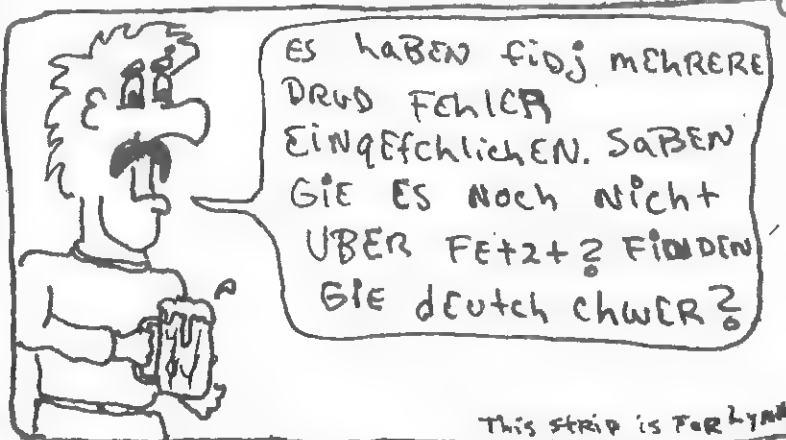 ES haBEN fiDj MEhRERE
DRUD FEhlER
EiNgEfchlichEN. SaBEN
GiE ES Noch Nicht
UBER FEt2t? FiNDEN
GiE dEutch chwER?
This strip is FoR Lynn